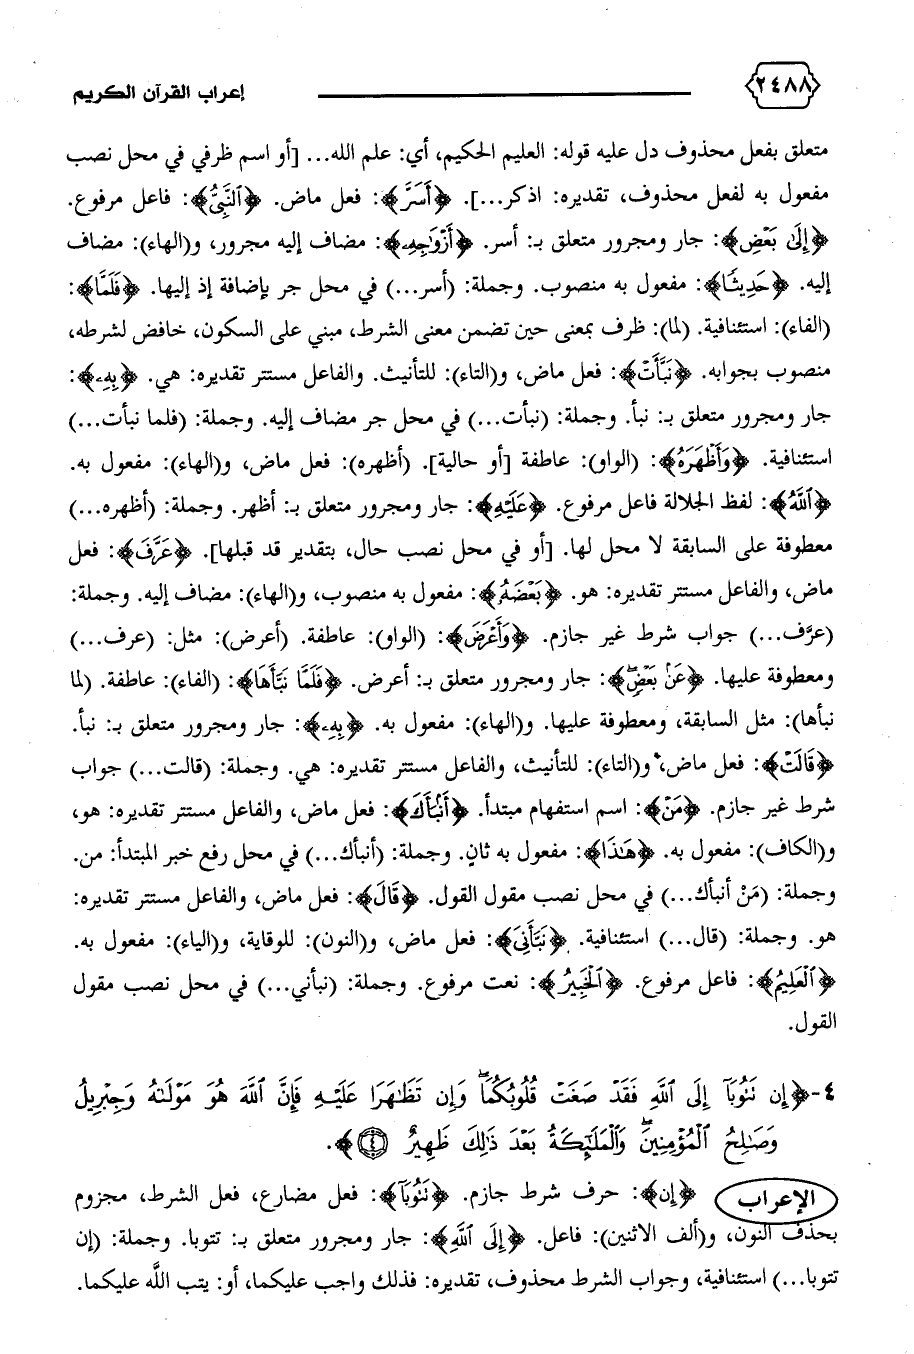 ٢٤٨٨ إعراب القرآن الكريم
متعلق بفعل محذوف دل عليه قوله: العليم الحكيم، أي: علم الله... [أو اسم ظرفي في محل نصب
مفعول به لفعل محذوف، تقديره: اذكر...]. ﴿أَسَرَّ﴾: فعل ماض. ﴿ٱلنَّبِىُّ﴾: فاعل مرفوع.
﴿إِلَىٰ بَعْضِ﴾: جار ومجرور متعلق بـ: أسر. ﴿أَزْوَٰجِهِۦ﴾: مضاف إليه مجرور، و(الهاء): مضاف
إليه. ﴿حَدِيثًا﴾: مفعول به منصوب. وجملة: (أسر...) في محل جر بإضافة إذ إليها. ﴿فَلَمَّا﴾:
(الفاء): استئنافية. (لما): ظرف بمعنى حين تضمن معنى الشرط، مبني على السكون، خافض لشرطه،
منصوب بجوابه. ﴿نَبَّأَتْ﴾: فعل ماض، و(التاء): للتأنيث. والفاعل مستتر تقديره: هي. ﴿بِهِۦ﴾:
جار ومجرور متعلق بـ: نبأ. وجملة: (نبأت...) في محل جر مضاف إليه. وجملة: (فلما نبأت...)
استئنافية. ﴿وَأَظْهَرَهُ﴾: (الواو): عاطفة [أو حالية]. (أظهره): فعل ماض، و(الهاء): مفعول به.
﴿ٱللَّهُ﴾: لفظ الجلالة فاعل مرفوع. ﴿عَلَيْهِ﴾: جار ومجرور متعلق بـ: أظهر. وجملة: (أظهره...)
معطوفة على السابقة لا محل لها. [أو في محل نصب حال، بتقدير قد قبلها]. ﴿عَرَّفَ﴾: فعل
ماض، والفاعل مستتر تقديره: هو. ﴿بَعْضَهُۥ﴾: مفعول به منصوب، و(الهاء): مضاف إليه. وجملة:
(عرَّف...) جواب شرط غير جازم. ﴿وَأَعْرَضَ﴾: (الواو): عاطفة. (أعرض): مثل: (عرف...)
ومعطوفة عليها. ﴿عَنۢ بَعْضٍ﴾: جار ومجرور متعلق بـ: أعرض. ﴿فَلَمَّا نَبَّأَهَا﴾: (الفاء): عاطفة. (لما
نبأها): مثل السابقة، ومعطوفة عليها. و(الهاء): مفعول به. ﴿بِهِۦ﴾: جار ومجرور متعلق بـ: نبأ.
﴿قَالَتْ﴾: فعل ماض، و(التاء): للتأنيث، والفاعل مستتر تقديره: هي. وجملة: (قالت...) جواب
شرط غير جازم. ﴿مَنْ﴾: اسم استفهام مبتدأ. ﴿أَنۢبَأَكَ﴾: فعل ماض، والفاعل مستتر تقديره: هو،
و(الكاف): مفعول به. ﴿هَـٰذَا﴾: مفعول به ثانٍ. وجملة: (أنبأك...) في محل رفع خبر المبتدأ: من.
وجملة: (مَنْ أنبأك...) في محل نصب مقول القول. ﴿قَالَ﴾: فعل ماض، والفاعل مستتر تقديره:
هو. وجملة: (قال...) استئنافية. ﴿نَبَّأَنِىَ﴾: فعل ماض، و(النون): للوقاية، و(الياء): مفعول به.
﴿ٱلْعَلِيمُ﴾: فاعل مرفوع. ﴿ٱلْخَبِيرُ﴾: نعت مرفوع. وجملة: (نبأني...) في محل نصب مقول
القول.
٤-﴿إِن تَتُوبَآ إِلَى ٱللَّهِ فَقَدْ صَغَتْ قُلُوبُكُمَا ۖ وَإِن تَظَـٰهَرَا عَلَيْهِ فَإِنَّ ٱللَّهَ هُوَ مَوْلَىٰهُ وَجِبْرِيلُ
وَصَـٰلِحُ ٱلْمُؤْمِنِينَ ۖ وَٱلْمَلَـٰٓئِكَةُ بَعْدَ ذَٰلِكَ ظَهِيرٌ ٤﴾.
الإعراب ﴿إِن﴾: حرف شرط جازم. ﴿تَتُوبَآ﴾: فعل مضارع، فعل الشرط، مجزوم
بحذف النون، و(ألف الاثنين): فاعل. ﴿إِلَى ٱللَّهِ﴾: جار ومجرور متعلق بـ: تتوبا. وجملة: (إن
تتوبا...) استئنافية، وجواب الشرط محذوف، تقديره: فذلك واجب عليكما، أو: يتب الله عليكما.